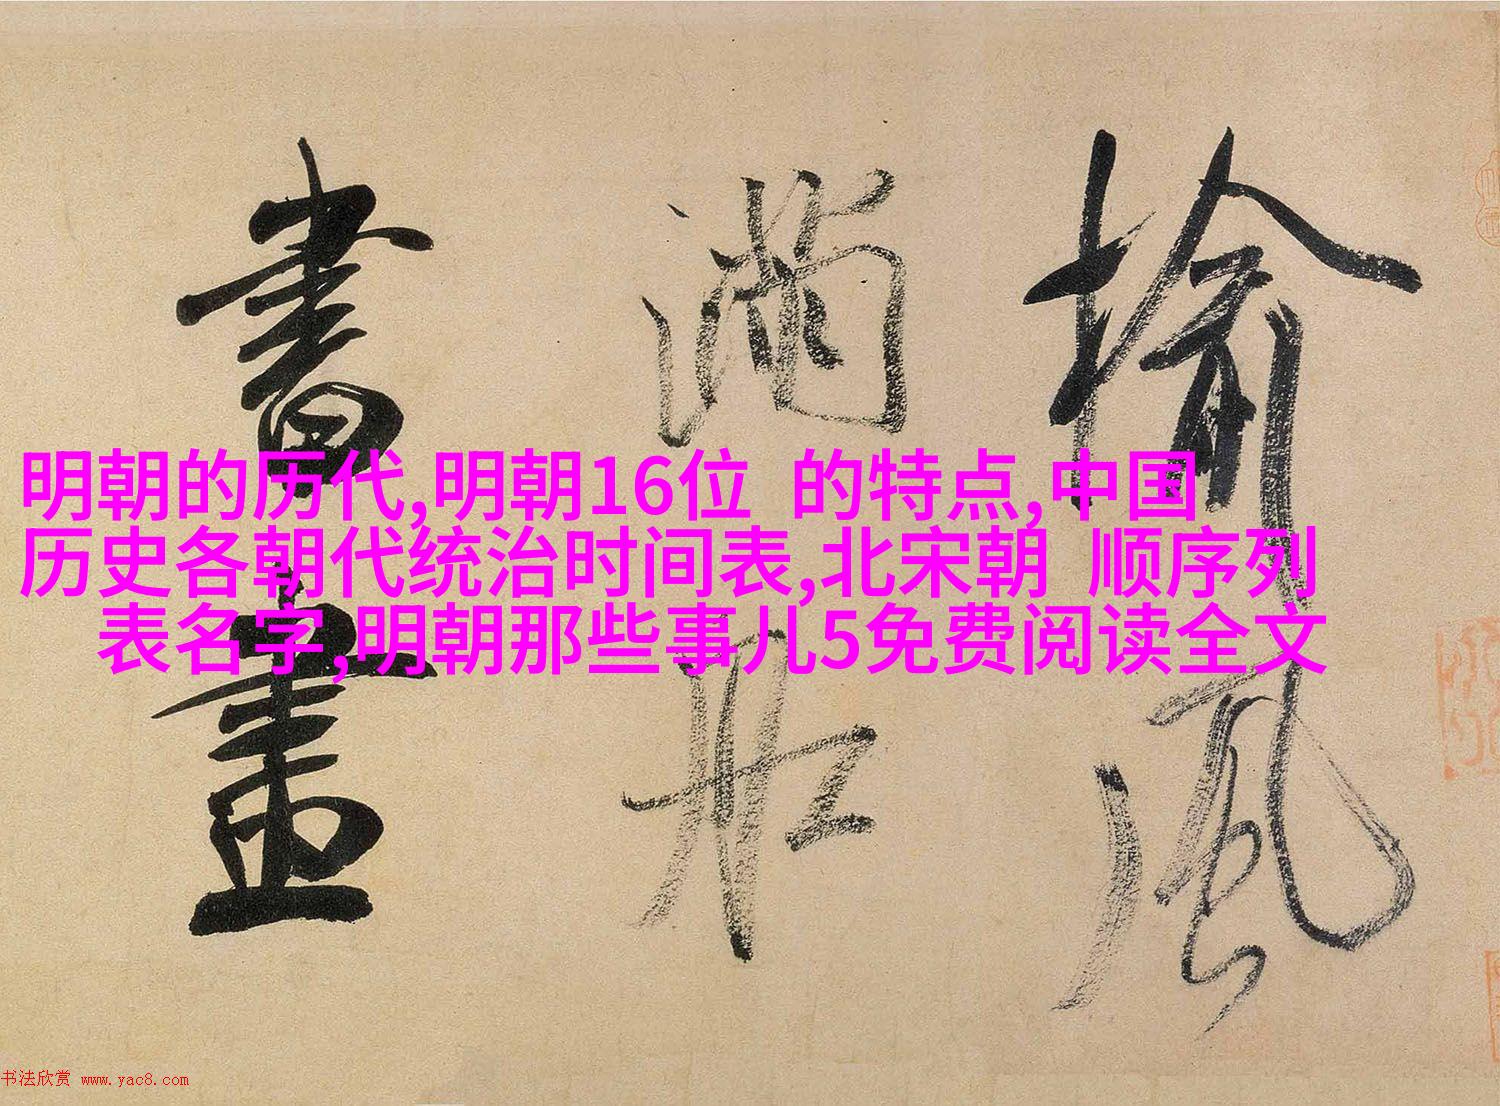 揄風
滿牀
書畫
明朝的历代,明朝16位 的特点,中国
历史各朝代统治时间表,北宋朝 顺序列
表名字,明朝那些事儿5免费阅读全文
书法欣赏 www.yac8.com